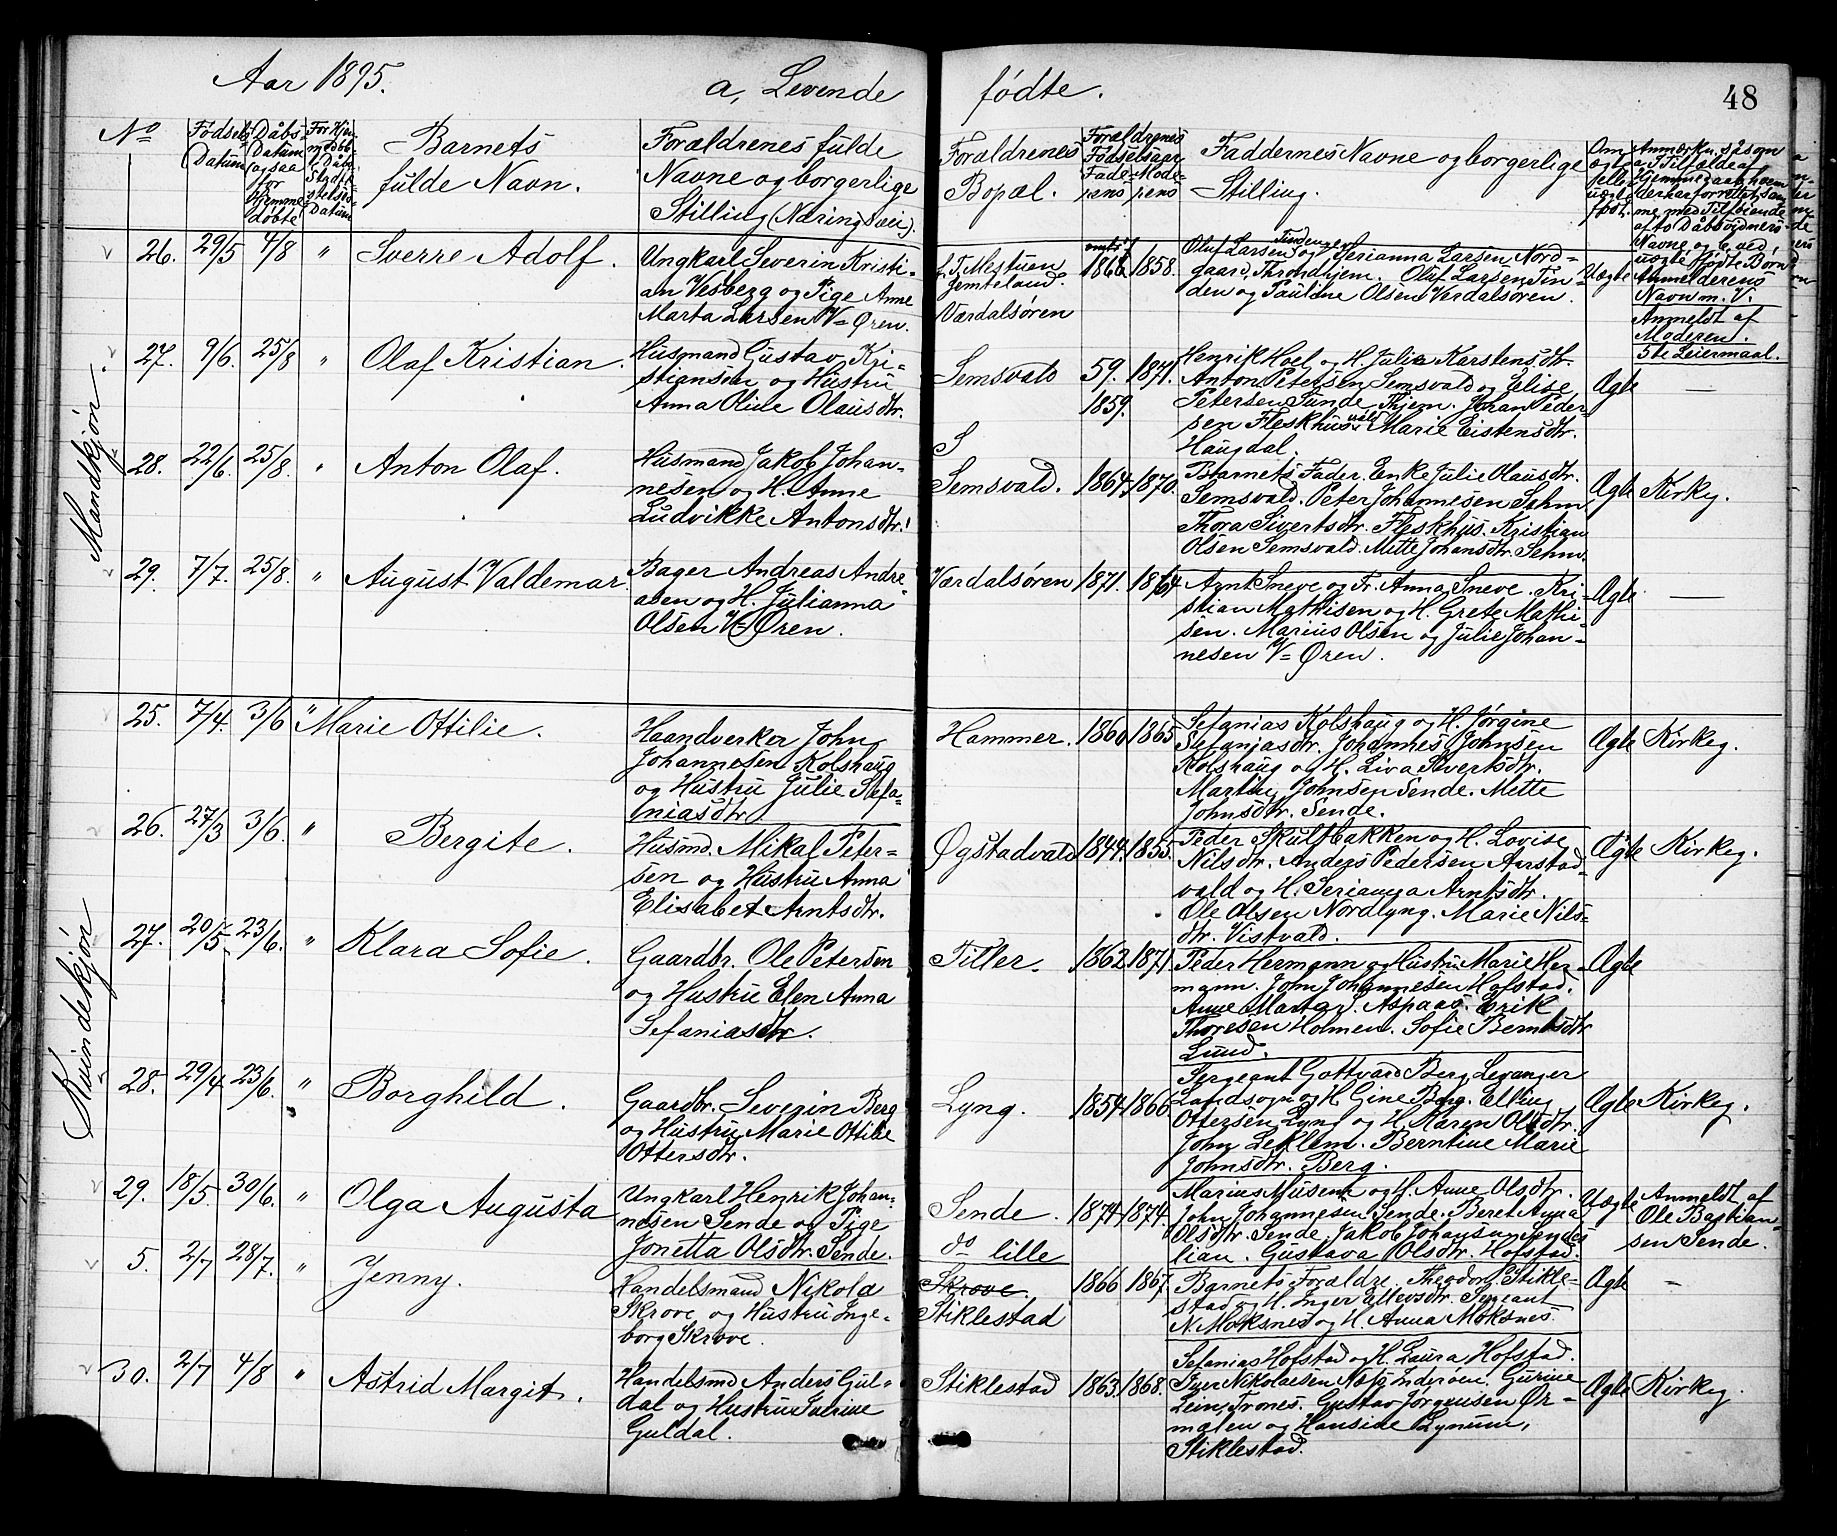 Aar 1895. a, Levende fødte. 48
No
Fødsels Datum
Dåbs Datum (ogsaa for hjemme døbte)
For Hjemmedøbt Dåbs Stadfæstelses Datum
Barnets fulde Navn.
Forældrenes fulde Navne og borgerlige Stilling (Næringsvei).
Forældrenes Bopæl.
Forældrenes Fødselsaar Faderens Moderens
Faddernes Navne og borgerlige Stilling.
Om ægte eller uægte født.
Mandkjøn.
26. 29/5 4/8 " Sverre Adolf.
Ungkarl Severin Kristi-
an Vesberg og Pige Anne
Marta Larsen V=Øren.
Jemteland.
Værdalsøren
1868 1858.
Oluf Larsen Tinden og Serianna Larsen Nord-
gaard, Throndhjem. Oluf Larsen Tin-
den og Pauline Olsen Verdalsøren.
Uægte
Anmeldt af
Moderen.
5te Leiermaal.
27. 9/6. 25/8 " Olaf Kristian.
Husmand Gustav Kri-
stiansen og Hustru
Anna Oline Olausdtr.
Semsvald 59. 1871.
1859.
Henrik Hoel og H. Julie Karstensdtr.
Anton Petersen Semsvald og Elise
Petersen Sunde Thjem. Johan Peder-
sen Fleskhus vald Marie Eistensdtr.
Haugdal.
Ægte —
28. 22/6. 25/8. " Anton Olaf.
Husmand Jakob Johan-
nesen og H. Anne
Ludvikke Antonsdtr.
S
Semsvald. 1864. 1870.
Barnets Fader. Enke Julie Olausdtr.
Semsvald. Peter Johannesen Sehm
Thora Sivertsdtr. Fleskhus. Kristian
Olsen Semsvald. Mette Johansdtr. Sehm.
Ægte Kirkeg.
29. 7/7. 25/8. " August Valdemar
Bager Andreas Andre-
asen og H. Julianna
Olsen V=Øren.
Værdalsøren 1871. 1864
Arnt Sneve og Fr. Anna Sneve. Kri-
stian Mathisen og H. Grete Mathi-
sen. Marius Olsen og Julie Johan-
nesen V=Øren.
Ægte —
Kvindekjøn
25. 7/4. 3/6 " Marie Ottilie.
Haandverker John
Johannesen Kolshaug
og Hustru Julie Sefa-
niasdtr
Hammer. 1860 1865
Sefanias Kolshaug og H. Jørgine
Sefaniasdtr. Johannes Johnsen
Kolshaug og H. Liva Sivertsdtr.
Martin Johnsen Sende. Mette
Johnsdtr. Sende.
Ægte Kirkeg.
26. 27/3 3/6. " Bergite.
Husmd. Mikal Peter-
sen og Hustru Anna
Elisabet Arntsdtr.
Øgstadvald 1844. 1855.
Peder Skulfbakken og H. Lovise
Nilsdtr. Anders Pedersen Aarstad-
vald og H. Serianna Arntsdtr.
Ole Olsen Nordlyng. Marie Nils-
dtr. Vistvald.
Ægte Kirkeg.
27. 20/5. 23/6. " Klara Sofie.
Gaardbr. Ole Petersen
og Hustru Elen Anna
Sefaniasdtr.
Tiller. 1862 1871
Peder Hermann og Hustru Marie Her-
mann. John Johannesen Hofstad.
Anne Marta J. Aspaas. Erik
Thoresen Holmen. Sofie Berntsdtr
Lund.
Ægte
28. 29/4 23/6. " Borghild.
Gaardbr. Severin Berg
og Hustru Marie Ottilie
Ottersdtr.
Lyng. 1854 1866
Sergeant Gottvard Berg Levanger
Landsogn og H. Gine Berg. Elling
Ottersen Lyng og H. Karen Olsdtr.
John Leklem. Berntine Marie
Johnsdtr. Berg.
Ægte Kirkeg.
29. 18/5. 30/6. " Olga Augusta
Ungkarl Henrik Johan-
nesen Sende og Pige
Jonetta Olsdtr. Sende.
Sende. 1874 1874.
do lille
Marius Musem og H. Anne Olsdtr.
John Johannesen Sende. Beret Anna
Olsdtr. Sende. Jakob Johansen Sendes
lian. Gustava Olsdtr. Hofstad.
Uægte Anmeldt af
Ole Bastian-
sen Sende.
5. 2/7 28/7. " Jenny.
Handelsmand Nikolai
Skrove og Hustru Inge-
borg Skrove.
Skrove.
Stiklestad
1866 1867.
Barnets Forældre. Theodor Stikle-
stad og H. Inger Ellevsdtr. Sergeant
N. Moksnes og H. Anna Moksnes.
Ægte -
30. 2/7 4/8 " Astrid Margit.
Handelsmd Anders Gul-
dal og Hustru Sverine
Guldal.
Stiklestad 1863. 1868.
Sefanias Hofstad og H. Laura Hofstad.
Iver Nikolaisen Næss Inderøen. Gurine
Lein, Trones. Gustav Jørgensen Ør-
malen og Hanside Lynum,
Stiklestad.
Ægte Kirkeg.